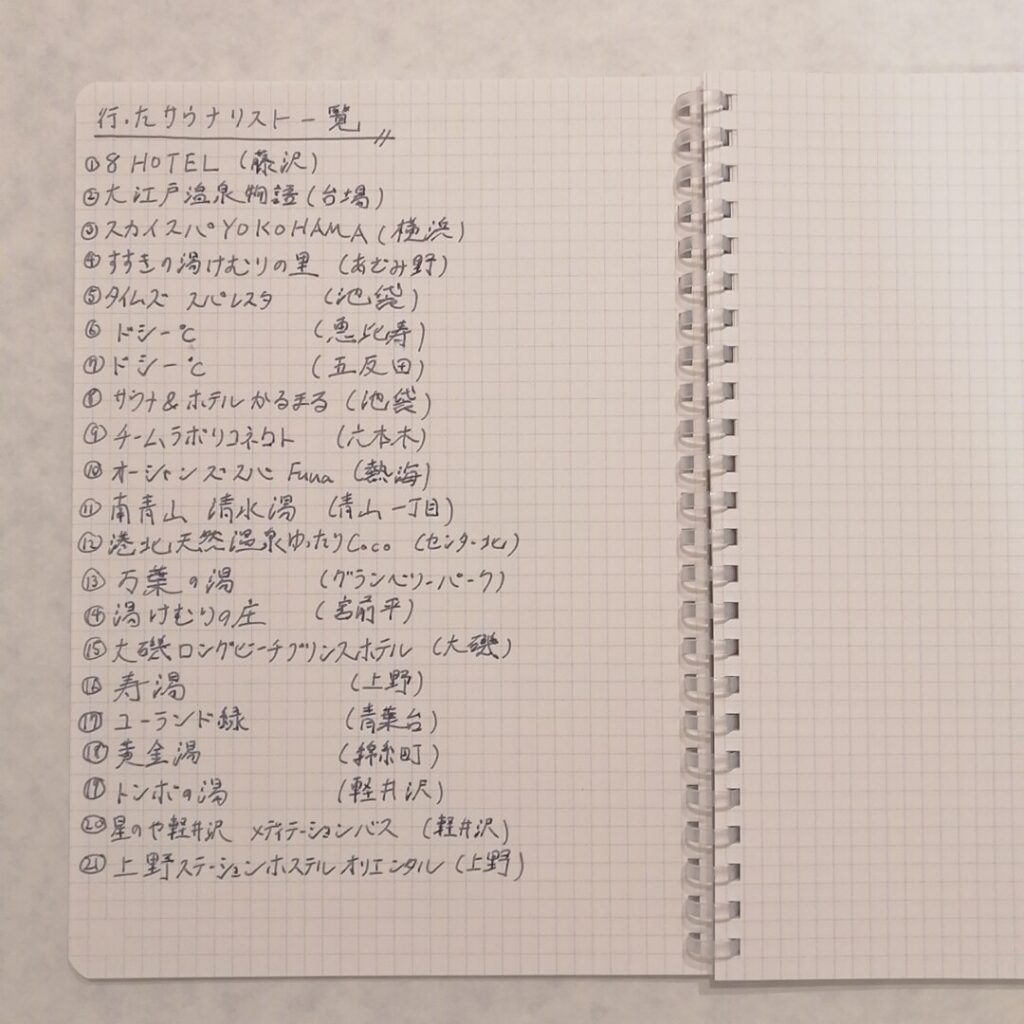 行ったサウナリスト一覧
①8 HOTEL (藤沢)
②大江戸温泉物語(台場)
③スカイスパYOKOHAMA(横浜)
④すすきの湯けむりの里 (あざみ野)
⑤タイムズ スパレスタ (池袋)
⑥ドシー℃ (恵比寿)
⑦ドシー℃ (五反田)
⑧サウナ&ホテルかるまる (池袋)
⑨チームラボリコネクト (六本木)
⑩オーシャンズスパ Fuua (熱海)
⑪南青山 清水湯 (青山一丁目)
⑫港北天然温泉ゆったりCoco (センター北)
⑬万葉の湯 (グランベリーパーク)
⑭湯けむりの庄 (宮前平)
⑮大磯ロングビーチプリンスホテル (大磯)
⑯寿湯 (上野)
⑰ユーランド緑 (青葉台)
⑱黄金湯 (錦糸町)
⑲トンボの湯 (軽井沢)
⑳星のや軽井沢 メディテーションバス (軽井沢)
㉑上野ステーションホステルオリエンタル(上野)